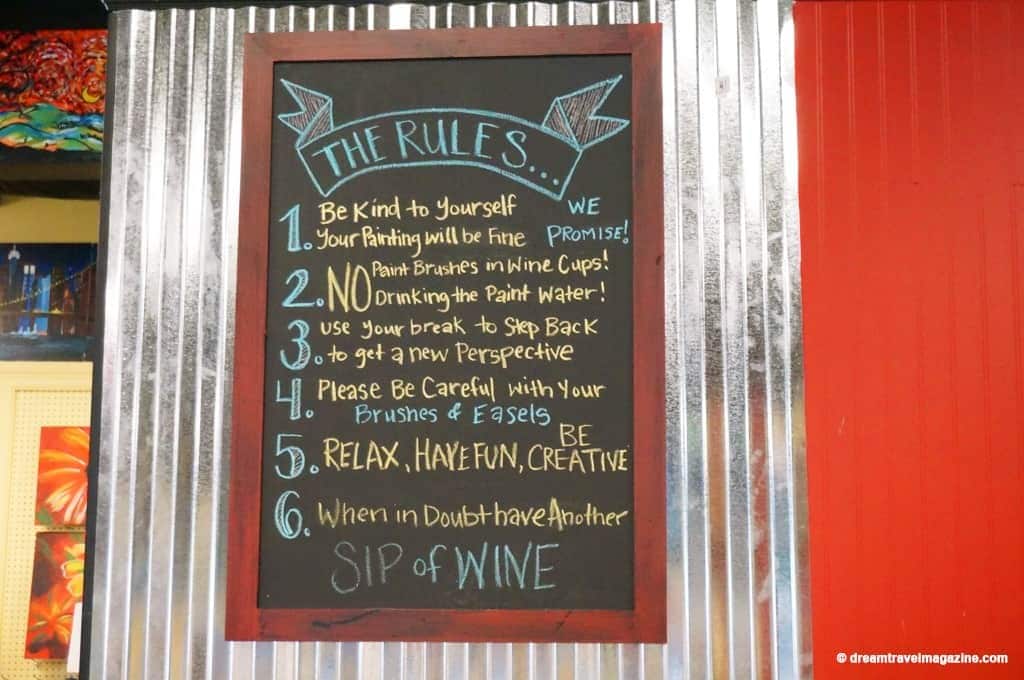 THE RULES...
1. Be Kind to Yourself
Your Painting will be Fine
WE
PROMISE!
2. NO Paint Brushes in Wine Cups!
Drinking the Paint Water!
3. use your break to Step Back
to get a new Perspective
4. Please Be Careful with Your
Brushes & Easels
5. RELAX, HAVE FUN, BE
CREATIVE
6. When in Doubt have Another
SIP of WINE
© dreamtravelmagazine.com